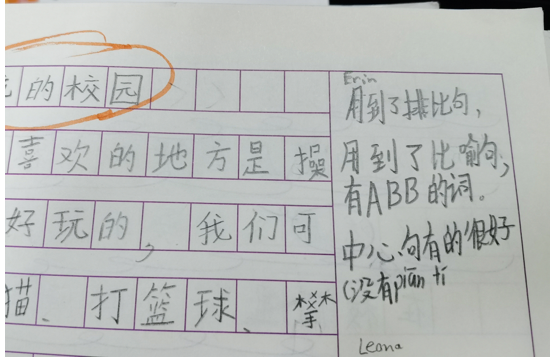 的校园
喜欢的地方是操
好玩的,我们可
猫、打篮球、攀
Erin
用到了排比句,
用到了比喻句,
有ABB的词。
中心句有的很好
(没有pian ti
Leana